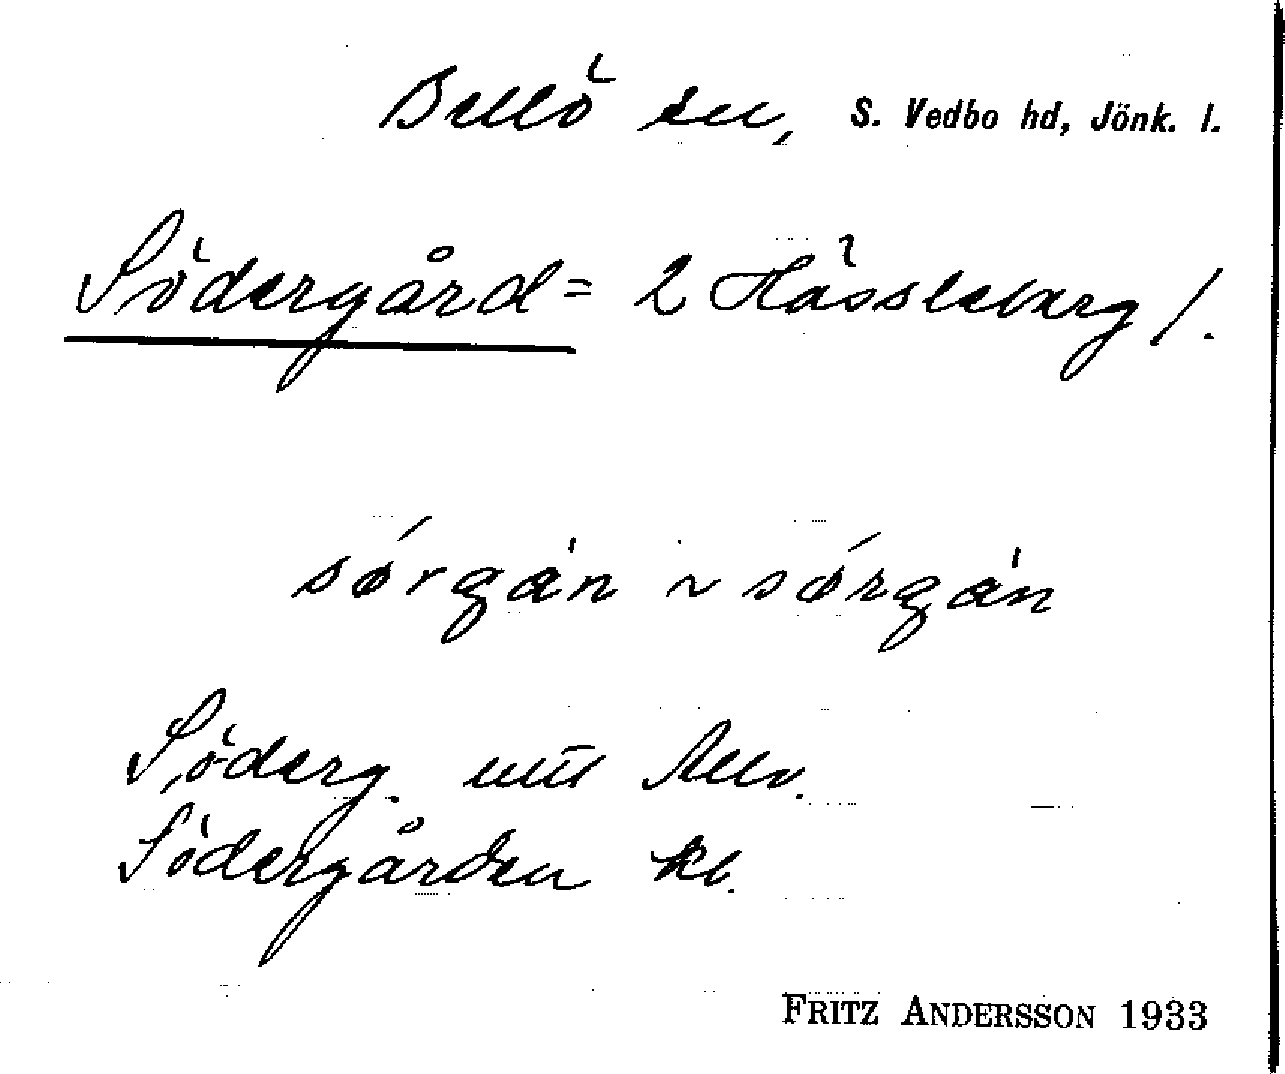 Bellö sn, S. Vedbo hd, Jönk. l.
Södergård = 2 Hässleberg /.
sørgán ~ sørgán
Söderg.
Södergården kb.
FRITZ ANDERSSON 1933